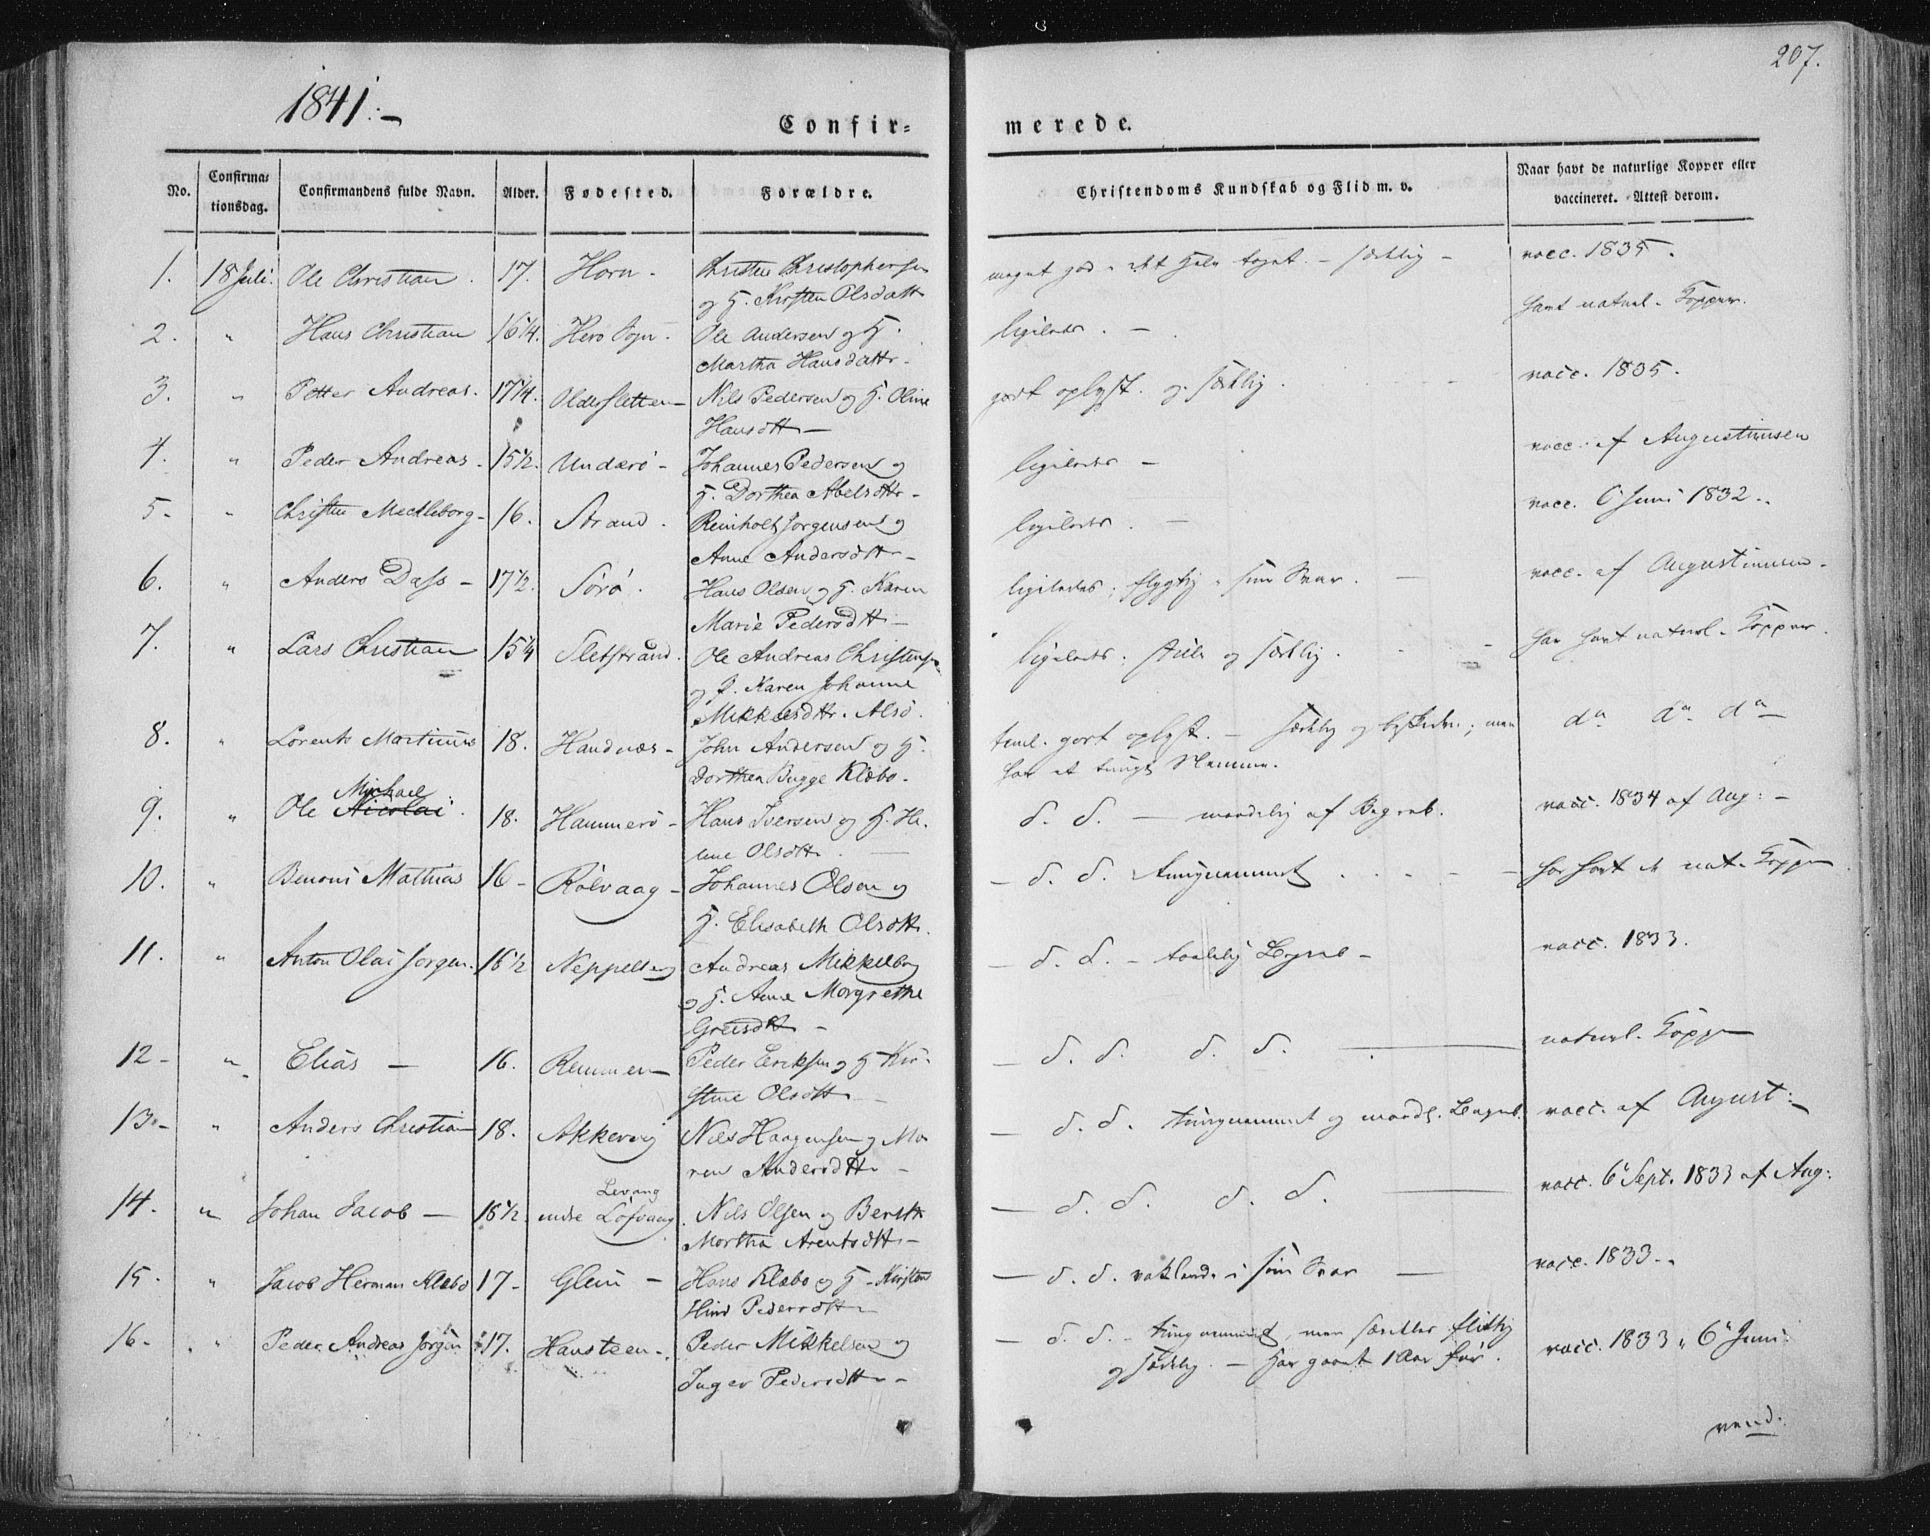 207.
1841.-
Confir-
merede.
No.
Confirma-
tionsdag.
Confirmandens fulde Navn.
Alder.
Fødested.
Forældre.
Christendoms Kundskab og Flid m. v.
Naar havt de naturlige Kopper eller
vaccineret. Attest derom.
1. 18 Juli. Ole Christian. 17. Horn. Christen Christophersen
og H. Kirsten Olsdatt
meget god - - vacc. 1835.
2. " Hans Christian 16 1/4. Herø Sogn. Ole Andersen og H.
Martha Hansdattr.
ligeledes. - havt naturl. Kopper.
3. " Petter Andreas. 17 1/4. Oldersletten Nils Pedersen og H. Oline
Hansdtt -
godt oplyst. og sædelig. vacc. 1835.
4. " Peder Andreas. 15 1/2. Underø - Johannes Pedersen og
H. Dorthea Abelsdttr -
ligeledes - vacc. af Augustinusen
5 - " Christen Mechleborg - 16. Strand. Reinholt Jørgensen og
Anne Andersdtt -
ligeledes. - vacc. 6 Juni 1832.
6. " Anders Dass - 17 1/2. Sørø. Hans Olsen og H. Karen
Marie Pedersdtt -
ligeledes; flygtig i sine Svar. - vacc. af Augustinusen.
7. " Lars Christian 15 1/4 Sletstrand. Ole Andreas Christens.
og H. Karen Johanne
Mikkelsdtr. Alsø.
ligeledes; stille og sædelig. har havt naturl. Kopper.
8. " Lorents Martinus 18. Handnæs - John Andersen og H.
Dorthea Bugge Klæbo.
teml. godt oplyst. - sædelig og beskeden; men
har et tungt Nemme.
do do do
9. " Ole Nicolai. Michael 18. Hammerø - Hans Iversen og H. He-
lene Olsdtt. -
d. d. - maadelig af Begreb. vacc. 1834 af Aug: -
10. " Benoni Mathias 16 - Rølvaag - Johannes Olsen og
H. Elisabeth Olsdtt.
- d. d. tungnemmet har havt nat. Kopper
11. " Anton Olai Jørgen. 16 1/2 Neppelberg Andreas Mikkelborg
og H. Anne Morgrethe
Greisdtt -
- d. d. - taalelig Begreb - vacc. 1833.
12 - " Elias - 16. Remmen Peder Eriksen og H Kir-
stine Olsdtt -
- d. d. d. d. naturl. Kopper
13 - " Anders Christian 18. Akkervig Niels Haagensen og Ma
ren Andersdtt -
- d. d. tungnemmet og maadl. Begreb. vacc. af August:
14. " Johan Jacob - 16 1/2. indre Løfvaag Levang. Nils Olsen og Berith
Martha Arentsdtt -
- d. d. d. d. vacc. 6 Sept. 1833 af Aug:
15. " Jacob Herman Klæbo 17 - Glein - Hans Klæbo og H. Kirsten
Hind Pedersdtt -
- d. d. vaklende i sine Svar - vacc. 1833.
16 - " Peder Andreas Jørgen 17. Hansteen. Peder Mikkelsen og
Inger Pedersdtt -
- d. d. - tungnemmet, men særdeles flittig
og sædelig. - Har gaaet 1 Aar før.
vacc. 1833, 6 Juni
vend.